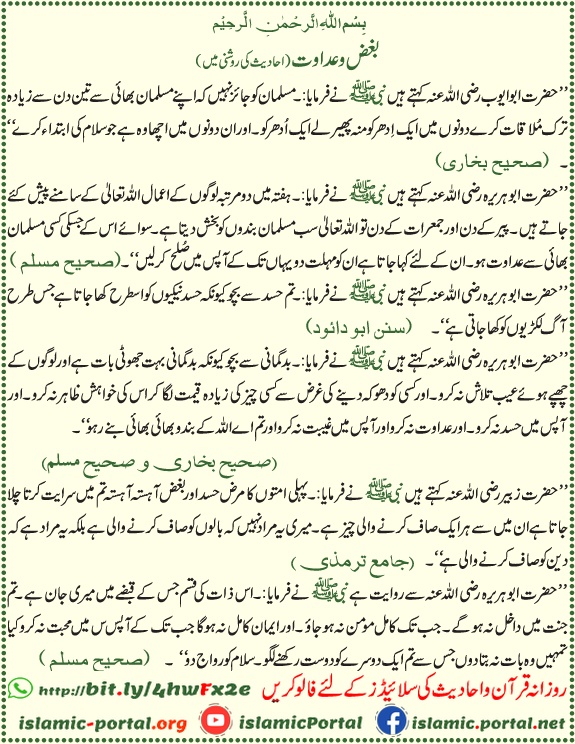 بِسْمِ اللهِ الرَّحْمٰنِ الرَّحِيْمِ
بغض و عداوت (احادیث کی روشنی میں)
’’حضرت ابوایوب رضی اللہ عنہ کہتے ہیں نبی ﷺ نے فرمایا:۔ مسلمان کو جائز نہیں کہ اپنے مسلمان بھائی سے تین دن سے زیادہ
ترک مُلاقات کرے دونوں میں ایک اِدھر کو منہ پھیر لے ایک اُدھر کو۔ اور ان دونوں میں اچھا وہ ہے جو سلام کی ابتداء کرے‘‘
۔ (صحیح بخاری)
’’حضرت ابوہریرہ رضی اللہ عنہ کہتے ہیں نبی ﷺ نے فرمایا:۔ ہفتہ میں دو مرتبہ لوگوں کے اعمال اللہ تعالیٰ کے سامنے پیش کئے
جاتے ہیں۔ پیر کے دن اور جمعرات کے دن تو اللہ تعالیٰ سب مسلمان بندوں کو بخش دیتا ہے۔ سوائے اس کے جسکی کسی مسلمان
بھائی سے عداوت ہو۔ ان کے لئے کہا جاتا ہے ان کو مہلت دو یہاں تک کے آپس میں صُلح کر لیں‘‘۔ (صحیح مسلم)
’’حضرت ابوہریرہ رضی اللہ عنہ کہتے ہیں نبی ﷺ نے فرمایا:۔ تم حسد سے بچو کیونکہ حسد نیکیوں کو اسطرح کھا جاتا ہے جس طرح
آگ لکڑیوں کو کھا جاتی ہے‘‘۔ (سنن ابو دائود)
’’حضرت ابوہریرہ رضی اللہ عنہ کہتے ہیں نبی ﷺ نے فرمایا:۔ بدگمانی سے بچو کیونکہ بدگمانی بہت جھوٹی بات ہے اور لوگوں کے
چھپے ہوئے عیب تلاش نہ کرو۔ اور کسی کو دھوکہ دینے کی غرض سے کسی چیز کی زیادہ قیمت لگا کر اس کی خواہش ظاہر نہ کرو۔ اور
آپس میں حسد نہ کرو۔ اور عداوت نہ کرو اور آپس میں غیبت نہ کرو اور تم اے اللہ کے بندو بھائی بھائی بنے رہو‘‘۔
(صحیح بخاری و صحیح مسلم)
’’حضرت زبیر رضی اللہ عنہ کہتے ہیں نبی ﷺ نے فرمایا:۔ پہلی امتوں کا مرض حسد اور بغض آہستہ آہستہ تم میں سرایت کرتا چلا
جاتا ہے ان میں سے ہر ایک صاف کرنے والی چیز ہے۔ میری یہ مراد نہیں کہ بالوں کو صاف کرنے والی ہے بلکہ یہ مراد ہے کہ
دین کو صاف کرنے والی ہے‘‘۔ (جامع ترمذی)
’’حضرت ابوہریرہ رضی اللہ عنہ سے روایت ہے نبی ﷺ نے فرمایا:۔ اس ذات کی قسم جس کے قبضے میں میری جان ہے۔ تم
جنت میں داخل نہ ہو گے۔ جب تک کامل مؤمن نہ ہو جاؤ۔ اور ایمان کامل نہ ہوگا جب تک کے آپس س میں محبت نہ کرو کیا
تمہیں وہ بات نہ بتا دوں جس سے تم ایک دوسرے کو دوست رکھنے لگو۔ سلام کو رواج دو‘‘۔ (صحیح مسلم)
روزانہ قرآن و احادیث کی سلائیڈز کے لئے فالو کریں http://bit.ly/4hwFx2e
islamic-portal.org islamicPortal islamic.portal.net